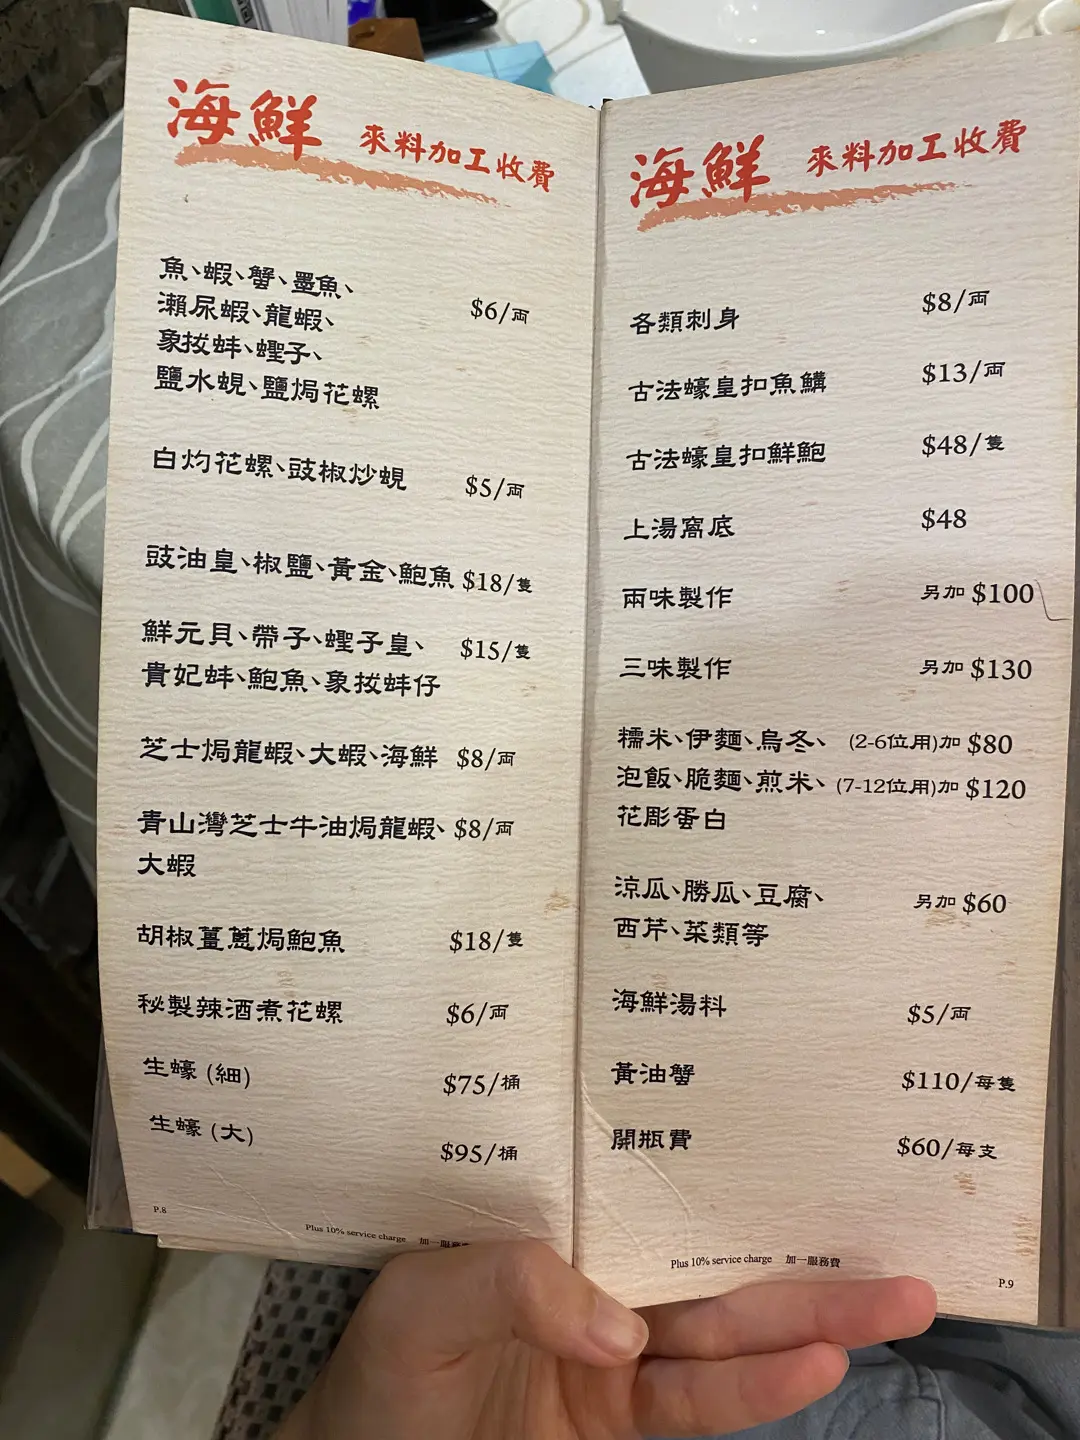 海鮮 來料加工收費
魚、蝦、蟹、墨魚、
瀨尿蝦、龍蝦、 $6/両
象拔蚌、蟶子、
鹽水蜆、鹽焗花螺
白灼花螺、豉椒炒蜆 $5/両
豉油皇、椒鹽、黃金、鮑魚 $18/隻
鮮元貝、帶子、蟶子皇、 $15/隻
貴妃蚌、鮑魚、象拔蚌仔
芝士焗龍蝦、大蝦、海鮮 $8/両
青山灣芝士牛油焗龍蝦、 $8/両
大蝦
胡椒薑蔥焗鮑魚 $18/隻
秘製辣酒煮花螺 $6/両
生蠔 (細) $75/桶
生蠔 (大) $95/桶
P.8
Plus 10% service charge 加一服務
海鮮 來料加工收費
各類刺身 $8/両
古法蠔皇扣魚鱅 $13/両
古法蠔皇扣鮮鮑 $48/隻
上湯窩底 $48
兩味製作 另加 $100
三味製作 另加 $130
糯米、伊麵、烏冬、 (2-6位用)加 $80
泡飯、脆麵、煎米、 (7-12位用)加 $120
花彫蛋白
涼瓜、勝瓜、豆腐、 另加 $60
西芹、菜類等
海鮮湯料 $5/両
黃油蟹 $110/每隻
開瓶費 $60/每支
Plus 10% service charge 加一服務費
P.9